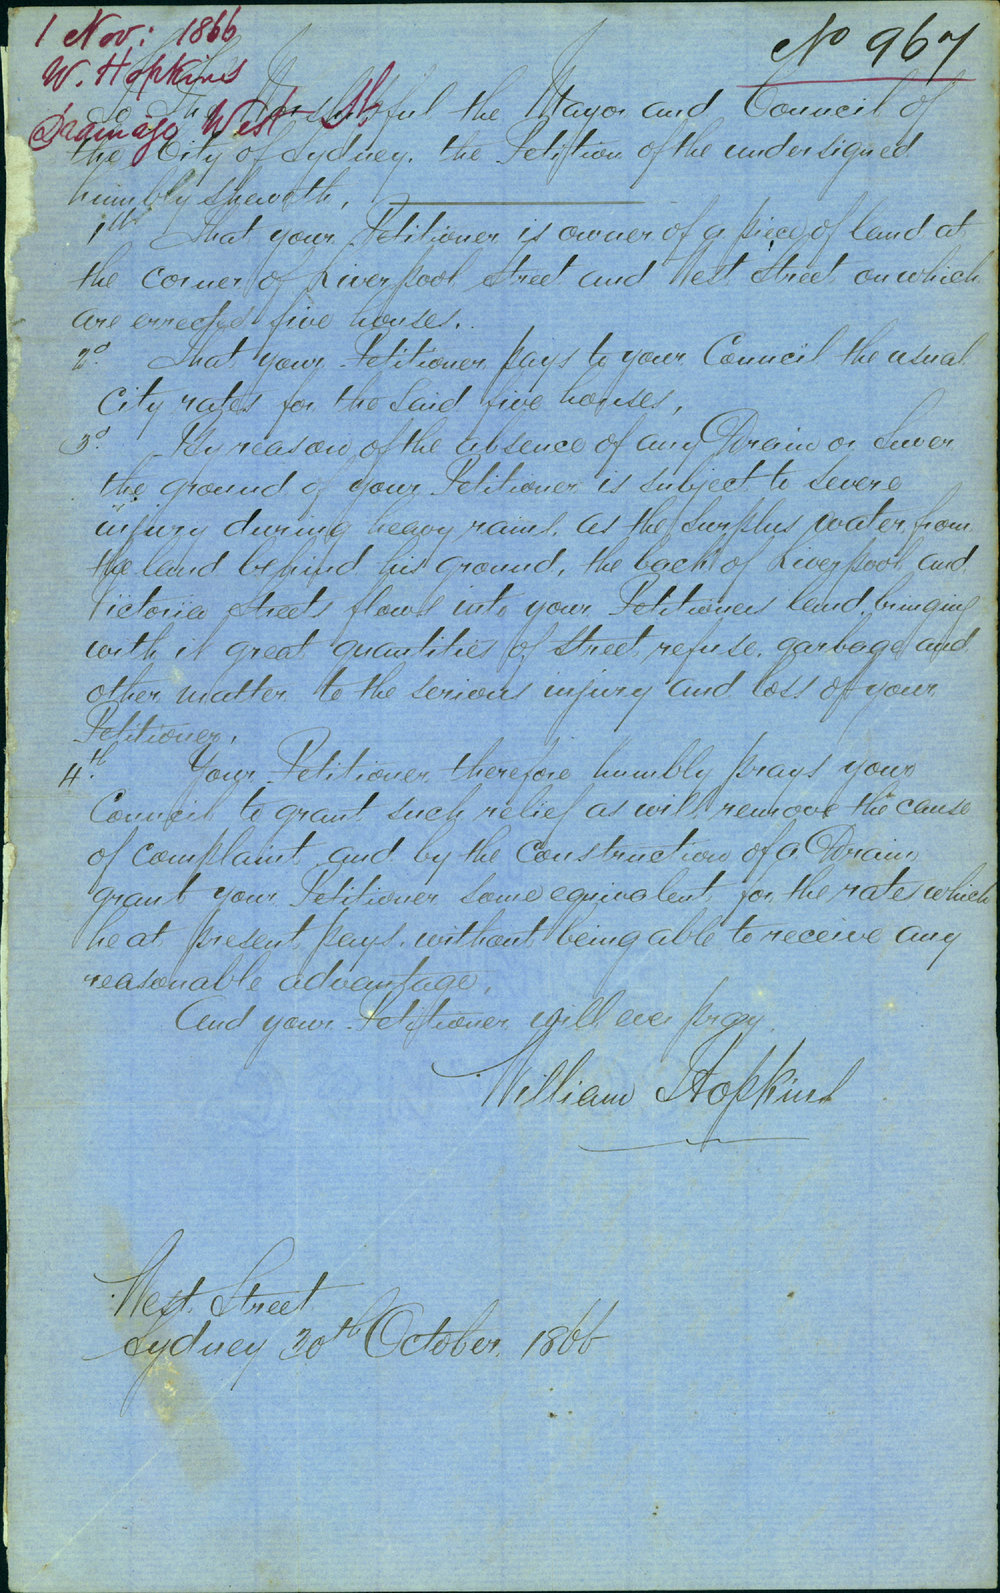 1 Nov: 1866
W. Hopkins
Drainage West St.
No 967
To The Worshipful the Mayor and Council of
the City of Sydney. the Petition of the undersigned
humbly sheweth.
1st That your Petitioner is owner of a piece of land at
the corner of Liverpool Street and West Street on which
are errected five houses.
2d. That your Petitioner pays to your Council the usual
City rates for the said five houses.
3d. By reason of the absence of any Drain or Sewer
the ground of your Petitioner is subject to severe
injury during heavy rains. as the surplus water from
the land behind his ground, the back of Liverpool and
Victoria Streets flows into your Petitioners land, bringing
with it great quantities of Street refuse, garbage and
other matter to the serious injury and loss of your
Petitioner.
4th. Your Petitioner therefore humbly prays your
Council to grant such relief as will remove the cause
of complaint and by the Construction of a Drain
grant your Petitioner some equivalent for the rates which
he at present pays, without being able to receive any
reasonable advantage.
And your Petitioner will ever pray
William Hopkins
West Street
Sydney 30th October 1866